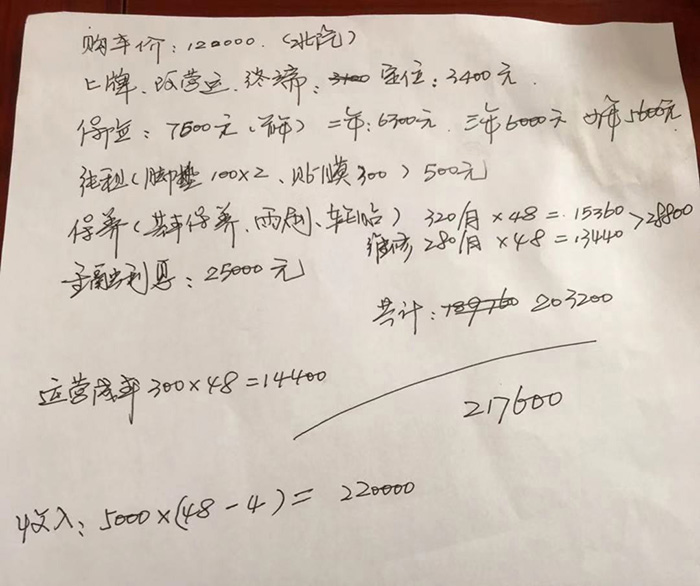 购车价：120000.（北汽）
上牌、改营运、终端：3100 定位：3400元.
保险：7500元（首年）二年：6300元. 三年6000元 四年5600元
纯利（脚垫100×2、贴膜300）500元
保养（基本保养、雨刮、车胎）320/月×48=15360>28800
维修280/月×48=13440
金融利息：25000元
共计：189760 203200
运营成本300×48=14400
217600
收入：5000×(48-4)=220000